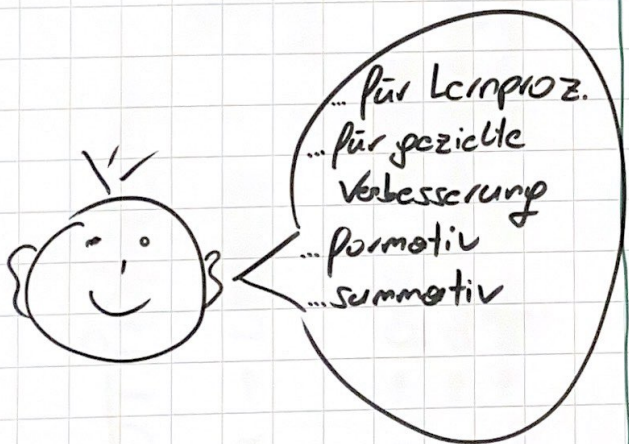 ... für Lernproz.
... für gezielte
Verbesserung
... formativ
... summativ